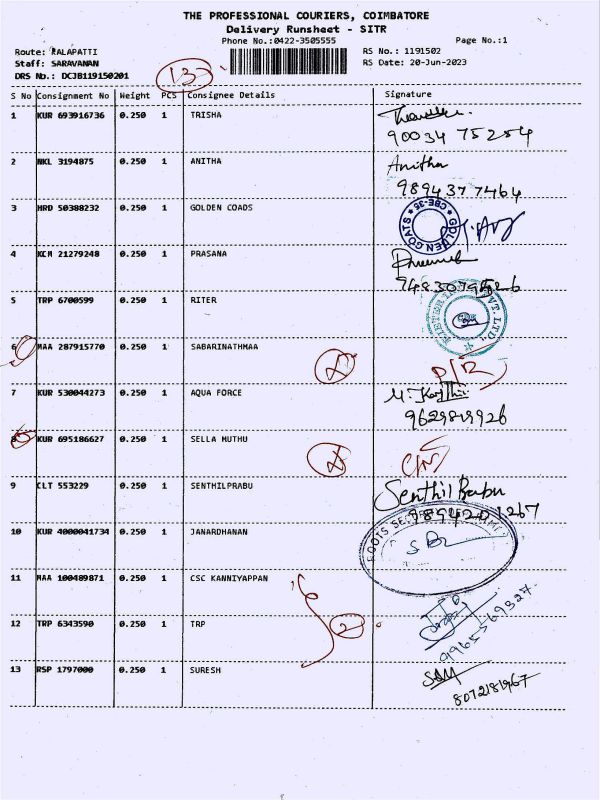 THE PROFESSIONAL COURIERS, COIMBATORE
Delivery Runsheet - SITR
Phone No.:0422-3505555 Page No.:1
Route: KALAPATTI RS No.: 1191502
Staff: SARAVANAN RS Date: 20-Jun-2023
DRS No.: DCJB119150201 13
S No Consignment No Weight PCS Consignee Details Signature
1 KUR 693916736 0.250 1 TRISHA
90034 75254
2 NKL 3194875 0.250 1 ANITHA Anitha
9894377464
3 HRD 50388232 0.250 1 GOLDEN COADS GOLDEN COATS CBE-35
4 KCM 21279248 0.250 1 PRASANA
5 TRP 6700599 0.250 1 RITER
6 MAA 287915770 0.250 1 SABARINATHMAA
7 KUR 530044273 0.250 1 AQUA FORCE
9629819926
8 KUR 695186627 0.250 1 SELLA MUTHU
9 CLT 553229 0.250 1 SENTHILPRABU Senthil Babu
10 KUR 4000041734 0.250 1 JANARDHANAN
11 MAA 100489871 0.250 1 CSC KANNIYAPPAN
12 TRP 6343590 0.250 1 TRP 2
9965569327
13 RSP 1797000 0.250 1 SURESH